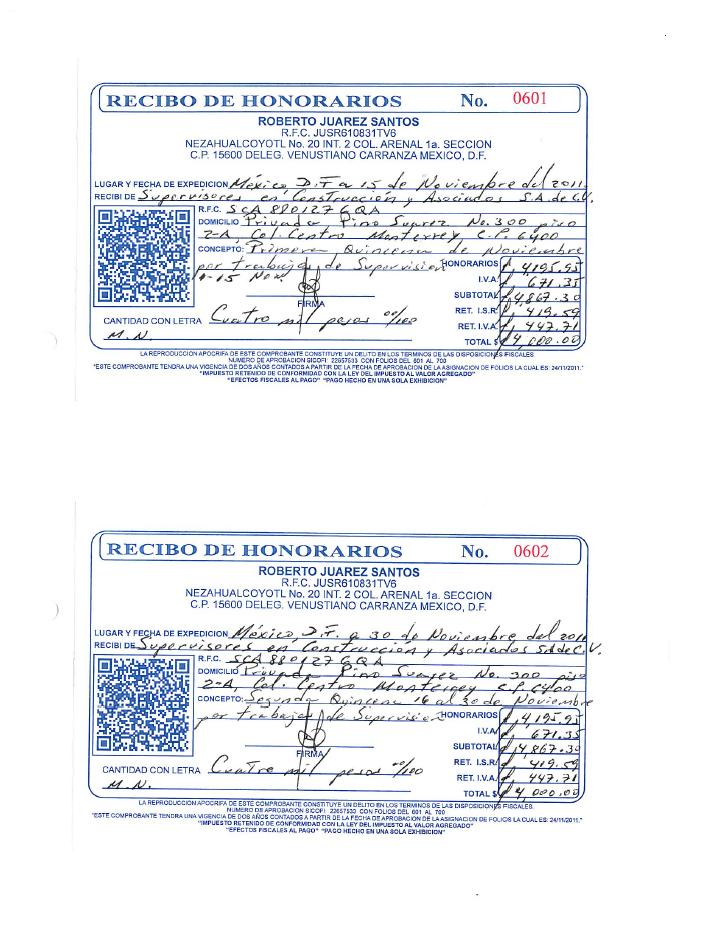 RECIBO DE HONORARIOS No. 0601
ROBERTO JUAREZ SANTOS
R.F.C. JUSR610831TV6
NEZAHUALCOYOTL No. 20 INT. 2 COL. ARENAL 1a. SECCION
C.P. 15600 DELEG. VENUSTIANO CARRANZA MEXICO, D.F.
LUGAR Y FECHA DE EXPEDICION México D.F a 15 de Noviembre del 2011.
RECIBI DE Supervisores en Construcción y Asociados S.A. de C.V.
R.F.C. SCA 880127 GQA
DOMICILIO Privada Pino Suarez No. 300 piso
2-A, Col. Centro Monterrey C.P. 6400
CONCEPTO: Primera Quincena de Noviembre
por trabajos de Supervision HONORARIOS 4195.95
1-15 Nov. I.V.A. 671.35
SUBTOTAL 4,867.30
FIRMA RET. I.S.R. 419.59
CANTIDAD CON LETRA Cuatro mil pesos 00/100 RET. I.V.A. 447.71
M.N. TOTAL $ 4,000.00
LA REPRODUCCION APOCRIFA DE ESTE COMPROBANTE CONSTITUYE UN DELITO EN LOS TERMINOS DE LAS DISPOSICIONES FISCALES
NUMERO DE APROBACION SICOFI: 22657533 CON FOLIOS DEL 601 AL 700
"ESTE COMPROBANTE TENDRA UNA VIGENCIA DE DOS AÑOS CONTADOS A PARTIR DE LA FECHA DE APROBACION DE LA ASIGNACION DE FOLIOS LA CUAL ES: 24/11/2011."
"IMPUESTO RETENIDO DE CONFORMIDAD CON LA LEY DEL IMPUESTO AL VALOR AGREGADO"
"EFECTOS FISCALES AL PAGO" "PAGO HECHO EN UNA SOLA EXHIBICION"
RECIBO DE HONORARIOS No. 0602
ROBERTO JUAREZ SANTOS
R.F.C. JUSR610831TV6
NEZAHUALCOYOTL No. 20 INT. 2 COL. ARENAL 1a. SECCION
C.P. 15600 DELEG. VENUSTIANO CARRANZA MEXICO, D.F.
LUGAR Y FECHA DE EXPEDICION México, D.F. a 30 de Noviembre del 2011
RECIBI DE Supervisores en Construcción y Asociados S.A de C.V.
R.F.C. SCA 880127 GQA
DOMICILIO Privada Pino Suarez No. 300 piso
2-A, Col. Centro Monterrey C.P. 6400
CONCEPTO: Segunda Quincena 16 al 30 de Noviembre
por trabajos de Supervision HONORARIOS 4,195.95
I.V.A. 671.35
SUBTOTAL 4,867.30
FIRMA RET. I.S.R. 419.59
CANTIDAD CON LETRA Cuatro mil pesos 00/100 RET. I.V.A. 447.71
M.N. TOTAL $ 4,000.00
LA REPRODUCCION APOCRIFA DE ESTE COMPROBANTE CONSTITUYE UN DELITO EN LOS TERMINOS DE LAS DISPOSICIONES FISCALES.
NUMERO DE APROBACION SICOFI: 22657533 CON FOLIOS DEL 601 AL 700
"ESTE COMPROBANTE TENDRA UNA VIGENCIA DE DOS AÑOS CONTADOS A PARTIR DE LA FECHA DE APROBACION DE LA ASIGNACION DE FOLIOS LA CUAL ES: 24/11/2011."
"IMPUESTO RETENIDO DE CONFORMIDAD CON LA LEY DEL IMPUESTO AL VALOR AGREGADO"
"EFECTOS FISCALES AL PAGO" "PAGO HECHO EN UNA SOLA EXHIBICION"